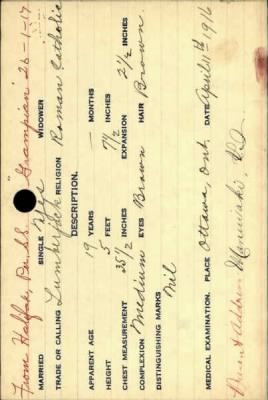 From Halifax, Per S.S. "Grampian" 26-1-17
MARRIED SINGLE Yes WIDOWER
TRADE OR CALLING Lumberjack RELIGION Roman Catholic
DESCRIPTION.
APPARENT AGE 19 YEARS — MONTHS
HEIGHT 5 FEET 7½ INCHES
CHEST MEASUREMENT 35½ INCHES EXPANSION 2½ INCHES
COMPLEXION Medium EYES Brown HAIR Brown.
DISTINGUISHING MARKS Nil
MEDICAL EXAMINATION. PLACE Ottawa, Ont. DATE April 11th 1916
Present Address Maniwaki, P.Q.